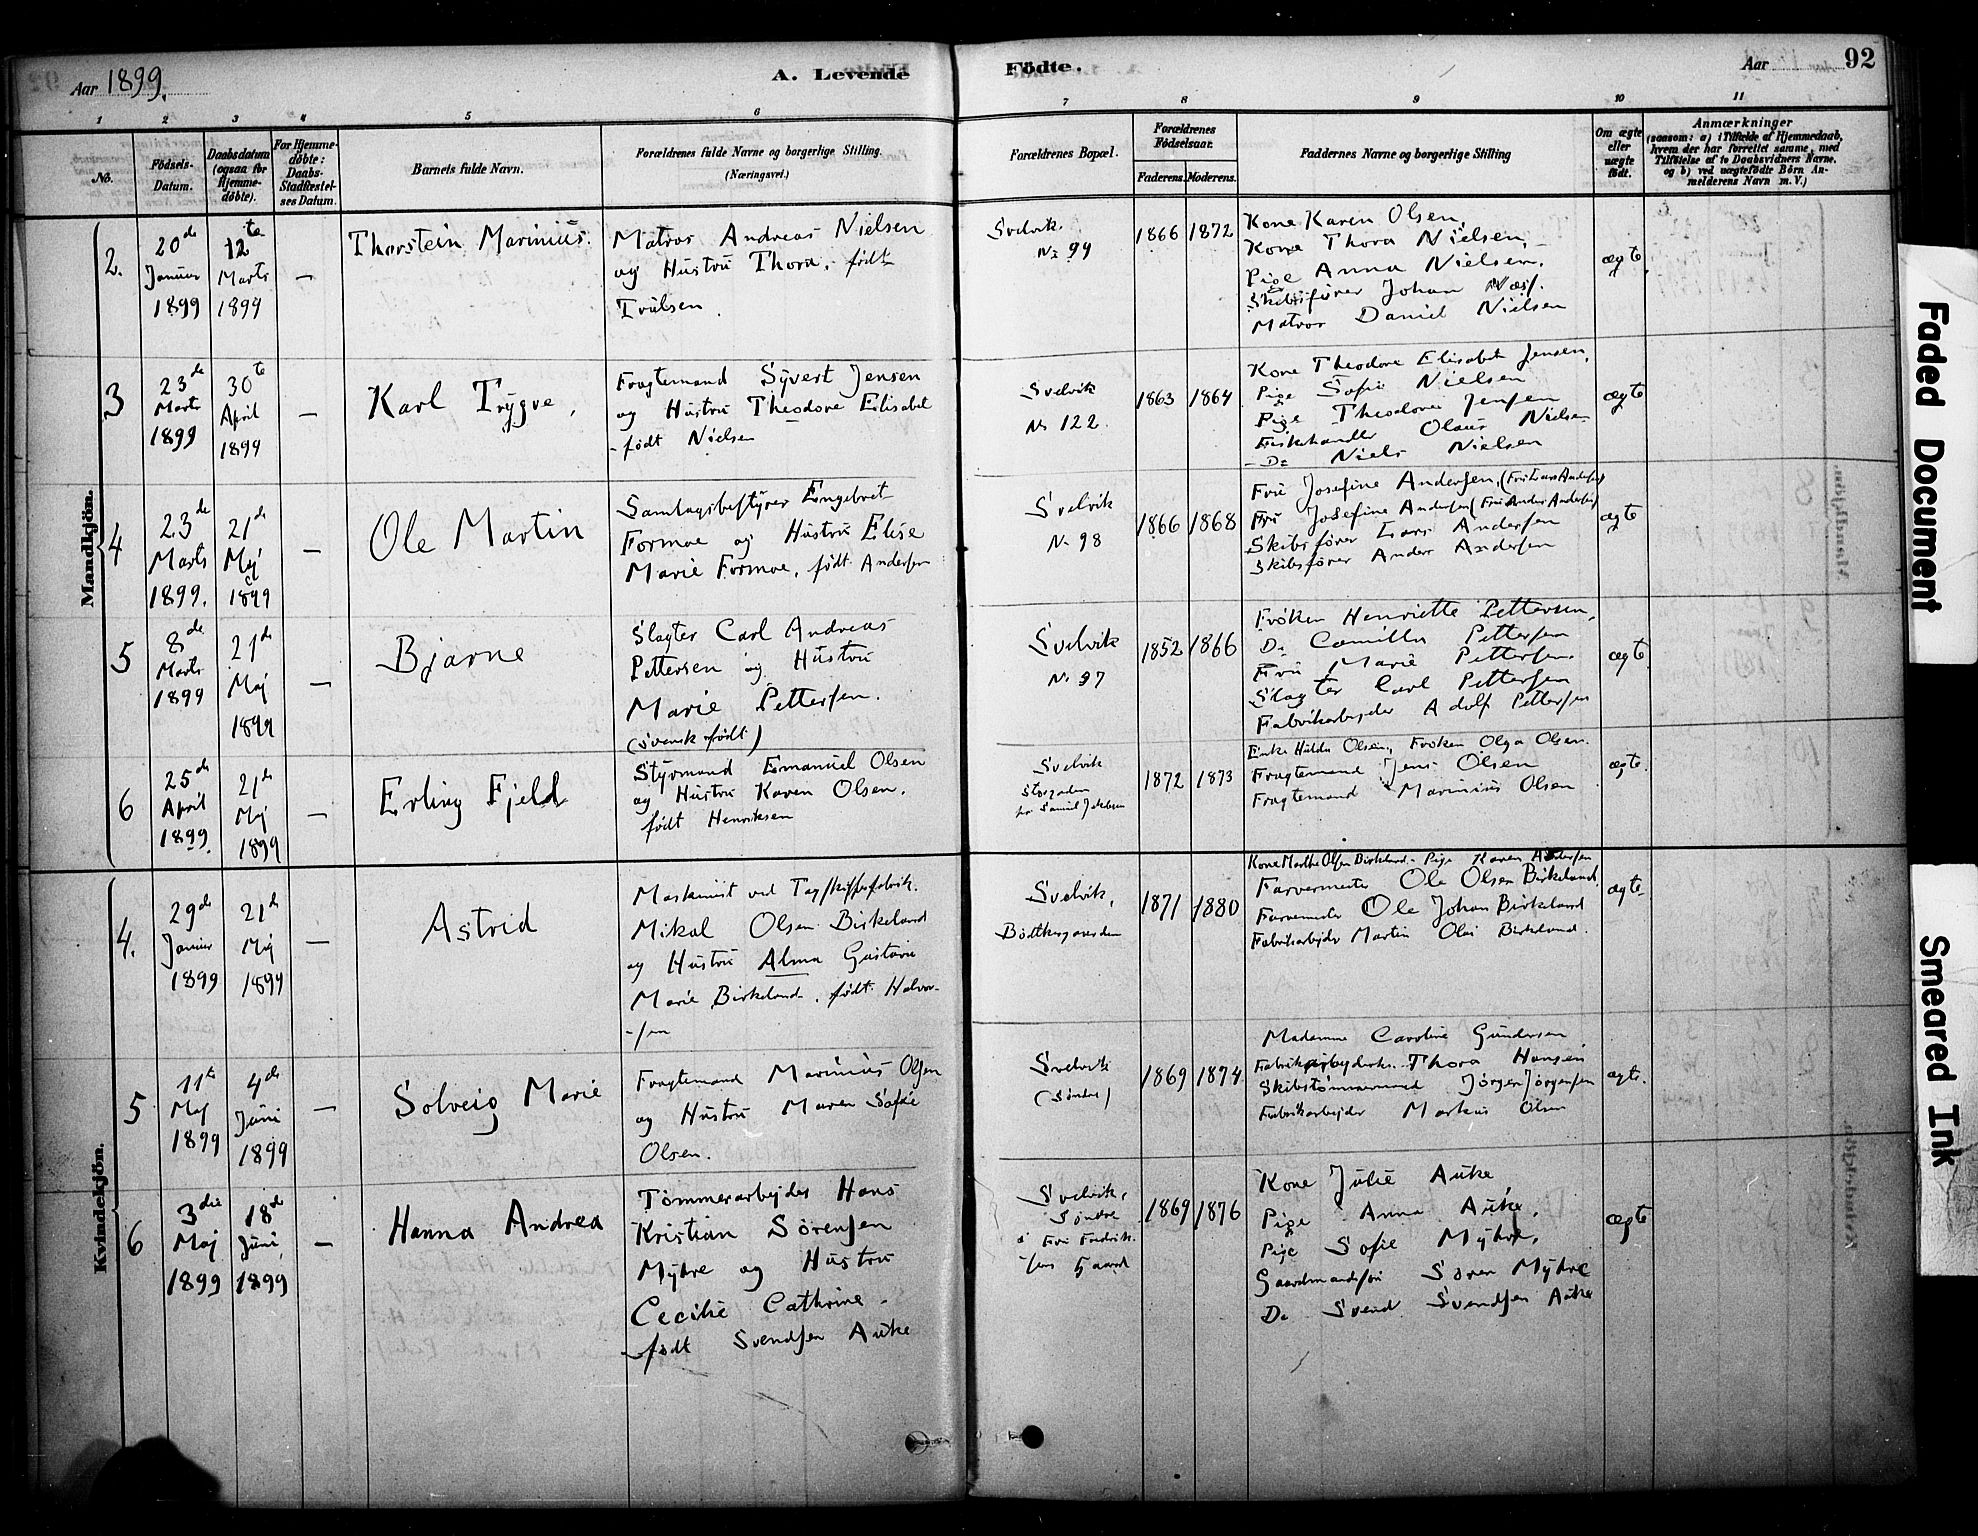 Aar 1899.
A. Levende
Födte.
Aar
92
1 2 3 4 5 6 7 8 9 10 11
No.
Födsels-
Datum.
Daabsdatum
(ogsaa for
Hjemme-
döbte).
For Hjemme-
döbte:
Daabs-
Stadfæstel-
ses Datum.
Barnets fulde Navn.
Forældrenes fulde Navne og borgerlige Stilling.
(Næringsvei.)
Forældrenes Bopæl.
Forældrenes
Födselsaar.
Faderens. Moderens.
Faddernes Navne og borgerlige Stilling
Om ægte
eller
uægte
födt.
Anmærkninger
(saasom: a) i Tilfælde af Hjemmedaab,
hvem der har forrettet samme, med
Tilföielse af to Daabsvidners Navne,
og b) ved uægtefödte Börn An-
melderens Navn m. V.)
Mandkjön.
2.
20de
Januar
1899
12te
Marts
1899
—
Thorstein Marinius.
Matros Andreas Nielsen
og Hustru Thora, født
Trulsen
Svelvik
No 99
1866 1872
Kone Karen Olsen,
Kone Thora Nielsen,
Pige Anna Nielsen,
Skibsfører Johan Næss.
Matros Daniel Nielsen
ægte
3
23de
Marts
1899
30te
April
1899
—
Karl Trygve,
Fragtemand Syvert Jensen
og Hustru Theodore Elisabet
født Nielsen
Svelvik
No 122.
1863 1864
Kone Theodore Elisabet Jensen,
Pige Sofie Nielsen
Pige Theodore Jensen
Fiskehandler Olaus Nielsen
Do Niels Nielsen
ægte
4
23de
Marts
1899.
21de
Maj
1899
—
Ole Martin
Samlagsbestyrer Engebret
Formoe og Hustru Elise
Marie Formoe, født Andersen
Svelvik
No 98
1866 1868
Fru Josefine Andersen, (Fru Lars Andersen)
Fru Josefine Andersen (Fru Anders Andersen)
Skibsfører Lars Andersen
Skibsfører Anders Andersen
ægte
5
8de
Marts
1899
21de
Maj
1899
—
Bjarne
Slagter Carl Andreas
Pettersen og Hustru
Marie Pettersen.
(svensk født)
Svelvik
No 97
1852 1866
Frøken Henriette Pettersen,
Do Camilla Pettersen
Fru Marie Pettersen
Slagter Carl Pettersen
Fabrikarbejder Adolf Pettersen
ægte
6
25de
April
1899.
21de
Maj
1899
—
Erling Fjeld
Styrmand Emanuel Olsen
og Hustru Karen Olsen,
født Henriksen
Svelvik
Storgaden
1872 1873
Enke Hulda Olsen, Frøken Olga Olsen.
Fragtemand Jens Olsen
Fragtemand Marinius Olsen
ægte.
Kvindekjön.
4.
29de
Januar
1899
21de
Maj
1899
—
Astrid
Maskinist ved
Mikal Olsen Birkeland
og Hustru Alma Gustava
Marie Birkeland, født Halvor-
-sen
Svelvik,
Bødtkergaarden
1871 1880
Kone Marthe Olsen Birkland. Pige Karen Andersen
Farvermester Ole Olsen Birkeland.
Farvermester Ole Johan Birkland
Fabrikarbejder Martin Olai Birkeland.
ægte.
5
11te
Maj
1899
4de
Juni
1899
—
Solveig Marie
Fragtemand Marinius Olsen
og Hustru Maren Sofie
Olsen.
Svelvik
(Søndre)
1869 1874
Madamme Caroline Gundersen
Fabrikarbejderske Thora Hansen
Skibstømmermand Jørgen Jørgensen
Fabrikarbejder Markus Olsen
ægte.
6
3die
Maj
1899
18de
Juni,
1899
—
Hanna Andrea
Tømmerarbejder Hans
Kristian Sörensen
Myhre og Hustru
Cecilie Cathrine.
født Svendsen Auke
Svelvik,
Søndre
i Fru Fredrik-
sens Gaard
1869 1876
Kone Julie Auke
Pige Anna Auke,
Pige Sofie Myhre,
Gaardmandssøn Søren Myhre
Do Svend Svendsen Auke
ægte
Faded Document
Smeared Ink